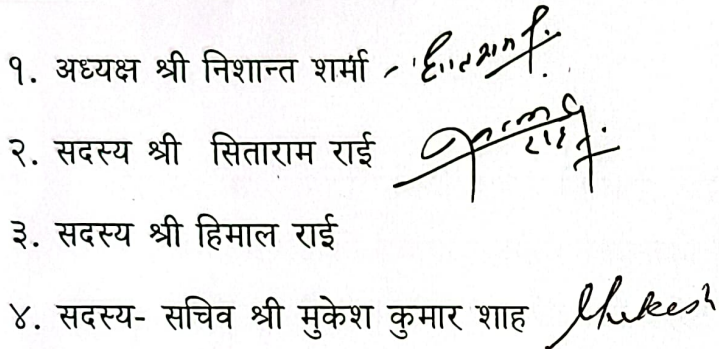 १. अध्यक्ष श्री निशान्त शर्मा -
२. सदस्य श्री सिताराम राई
३. सदस्य श्री हिमाल राई
४. सदस्य- सचिव श्री मुकेश कुमार शाह Mukesh